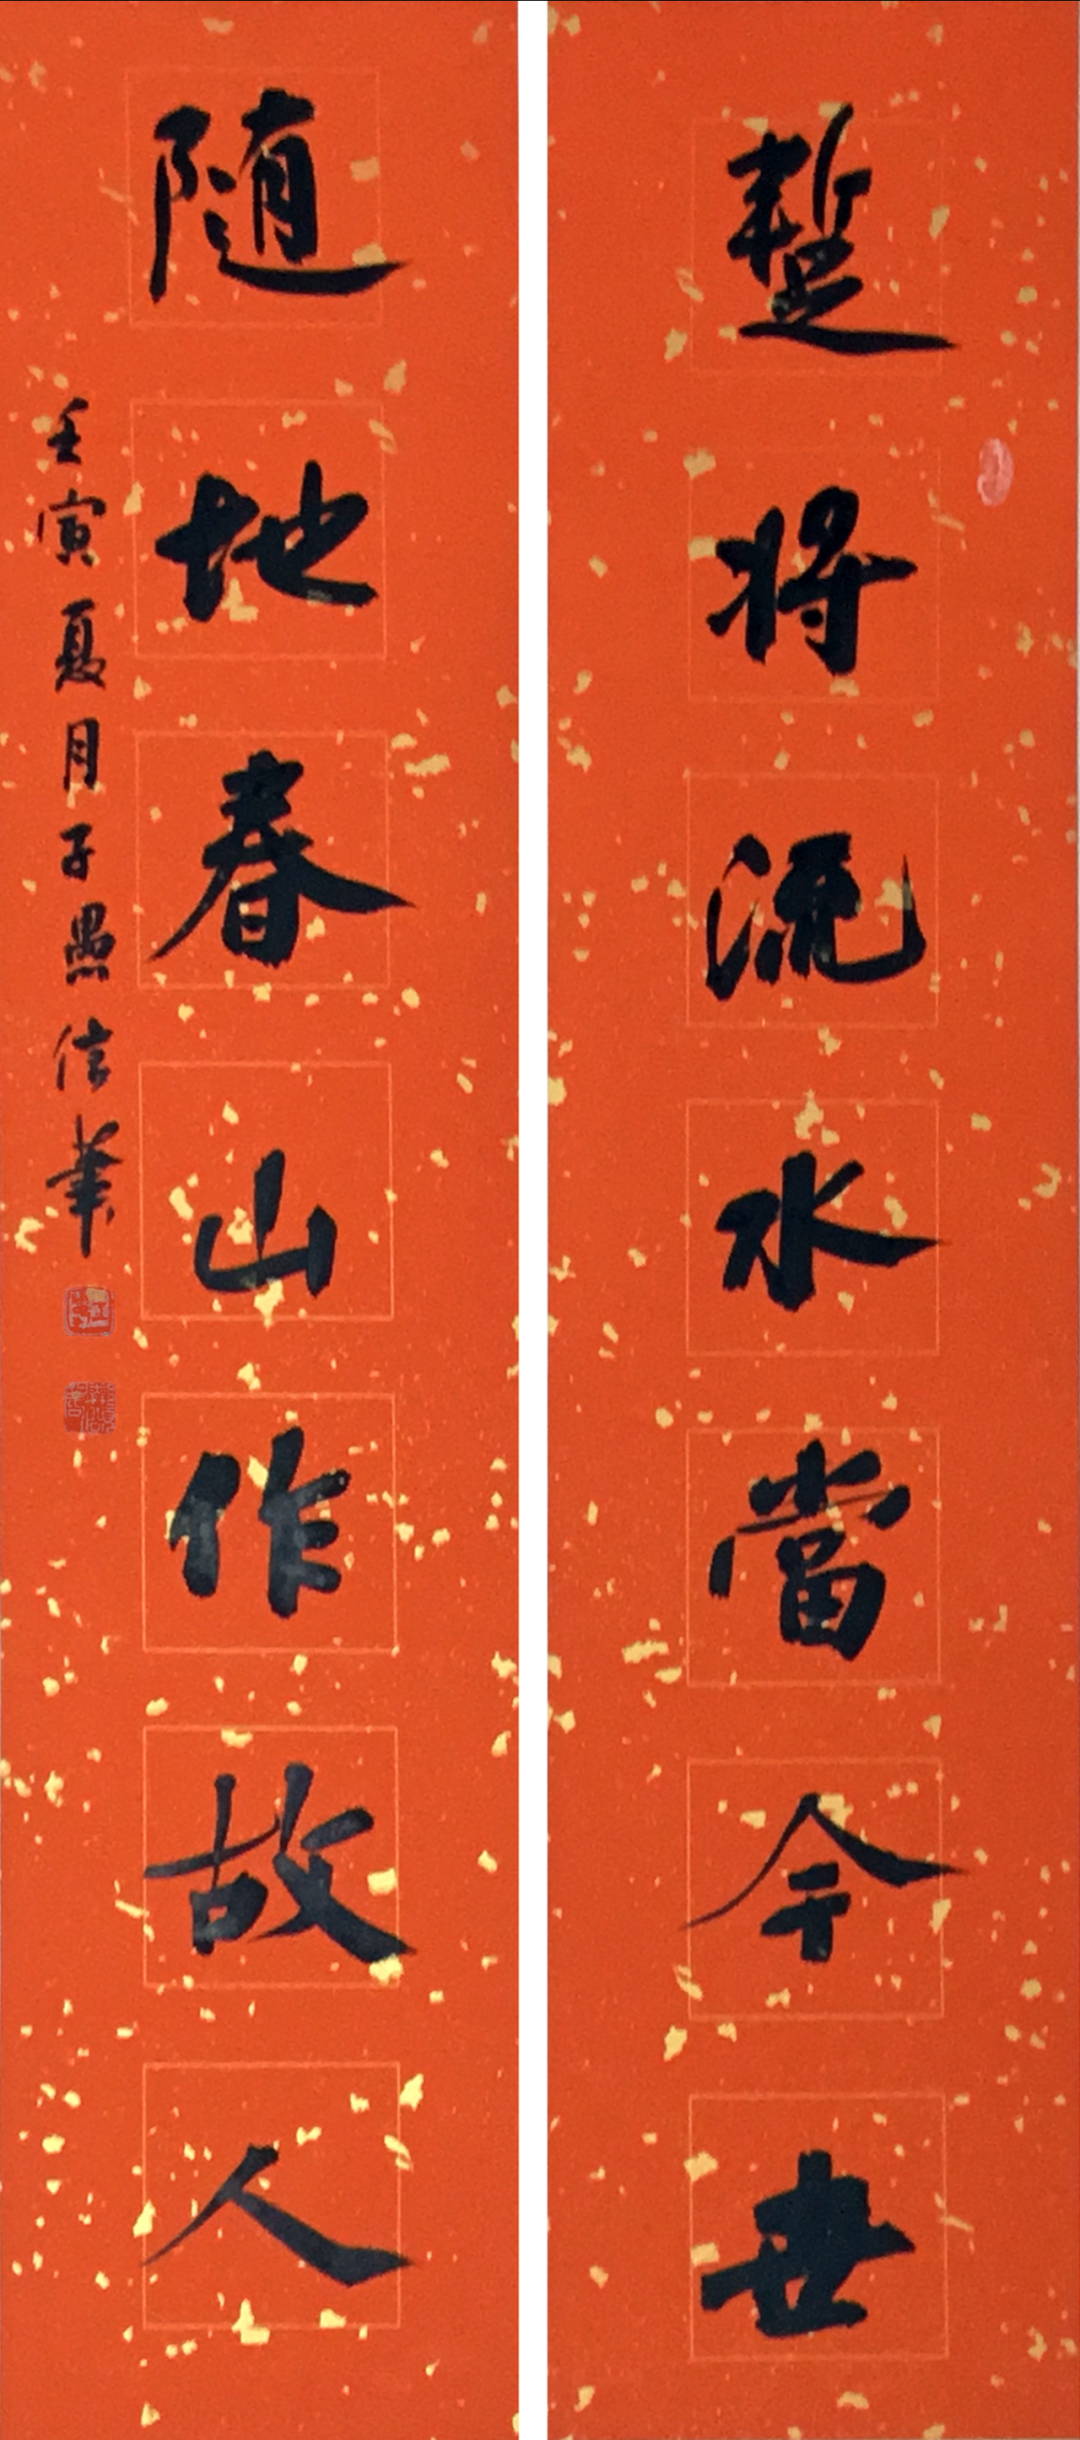 蹔将流水當今世
随地春山作故人
壬寅夏月子愚信筆